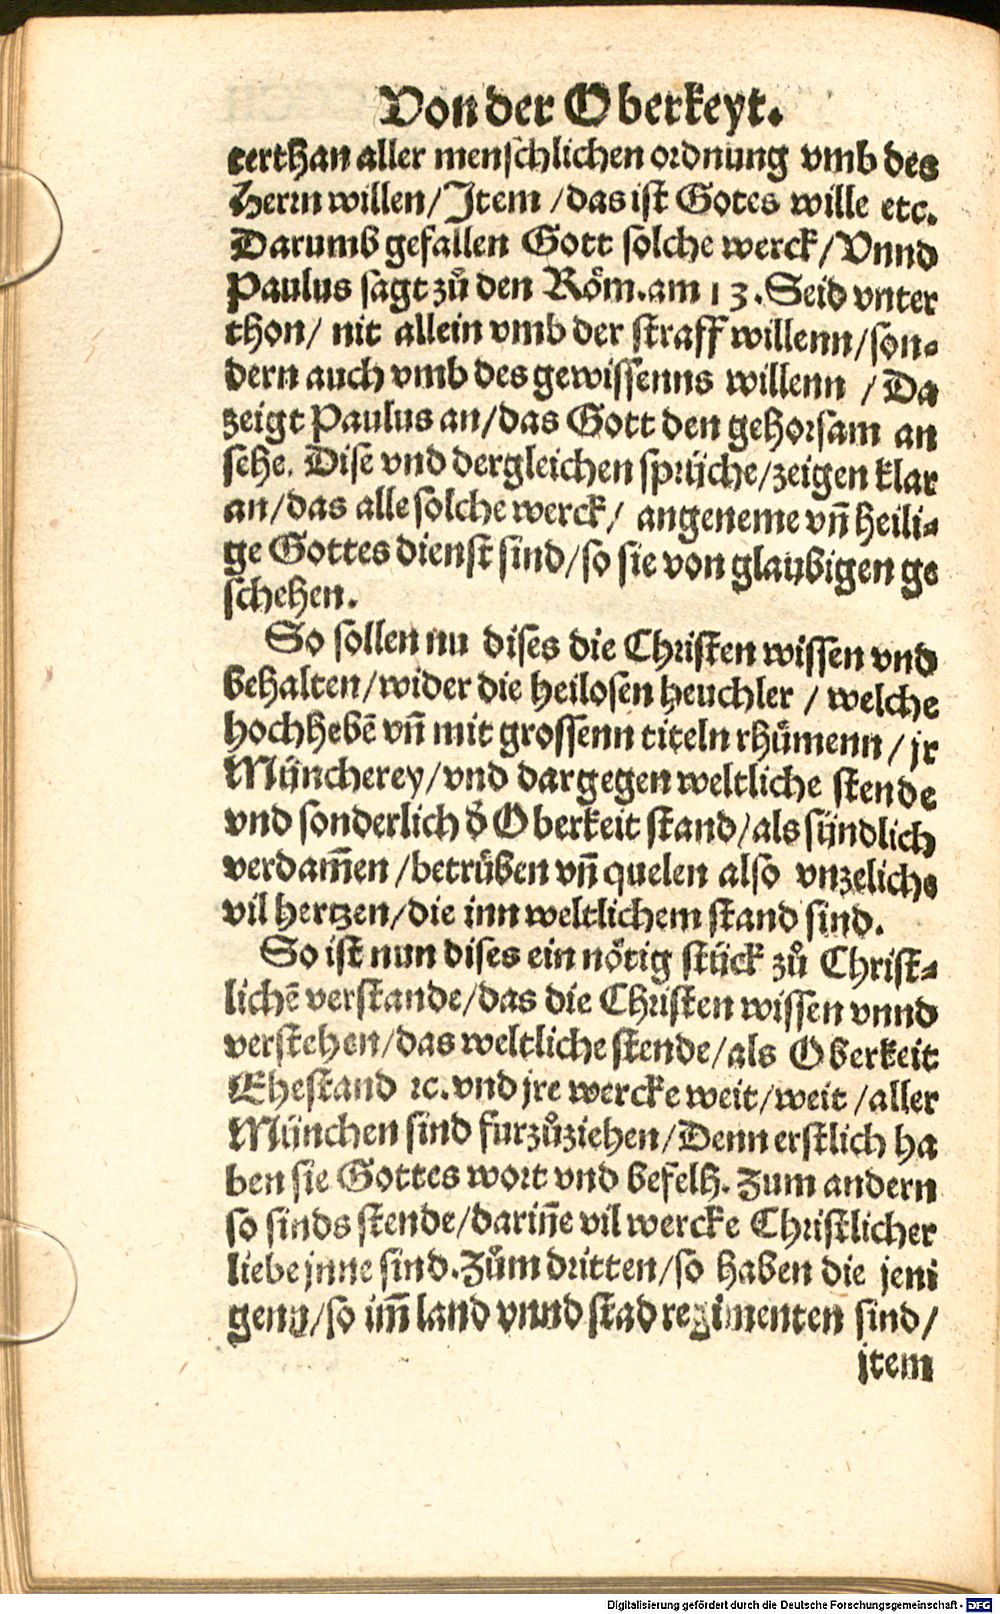 Von der Oberkeyt.
terthan aller menschlichen ordnung vmb des
Herrn willen/Jtem /das ist Gotes wille etc.
Darumb gefallen Gott solche werck/Vnnd
Paulus sagt zů den Röm.am 13. Seid vnter
thon/ nit allein vmb der straff willenn/son⸗
dern auch vmb des gewissenns willenn /Da
zeigt Paulus an/das Gott den gehorsam an
sehe. Dise vnd dergleichen sprüche/zeigen klar
an/das alle solche werck/ angeneme vñ heili⸗
ge Gottes dienst sind/so sie von glaubigen ge
schehen.
So sollen nu dises die Christen wissen vnd
behalten/wider die heilosen heuchler / welche
hochhebẽ vñ mit grossenn titeln rhümenn / jr
Müncherey/vnd dargegen weltliche stende
vnd sonderlich d̉ Oberkeit stand/als sündlich
verdam̃en /betrüben vñ quelen also vnzeliche
vil hertzen/die inn weltlichem stand sind.
So ist nun dises ein nötig stück zů Christ⸗
lichẽ verstande/das die Christen wissen vnnd
verstehen/das weltliche stende/als Oberkeit
Ehestand ꝛc.vnd jre wercke weit/weit /aller
München sind furzůziehen/Denn erstlich ha
ben sie Gottes wort vnd befelh. Zum andern
so sinds stende/dariñe vil wercke Christlicher
liebe jnne sind.Zům dritten/so haben die jeni
genn/so im̃ land vnnd stad regimenten sind/
jtem
Digitalisierung gefördert durch die Deutsche Forschungsgemeinschaft - DFG